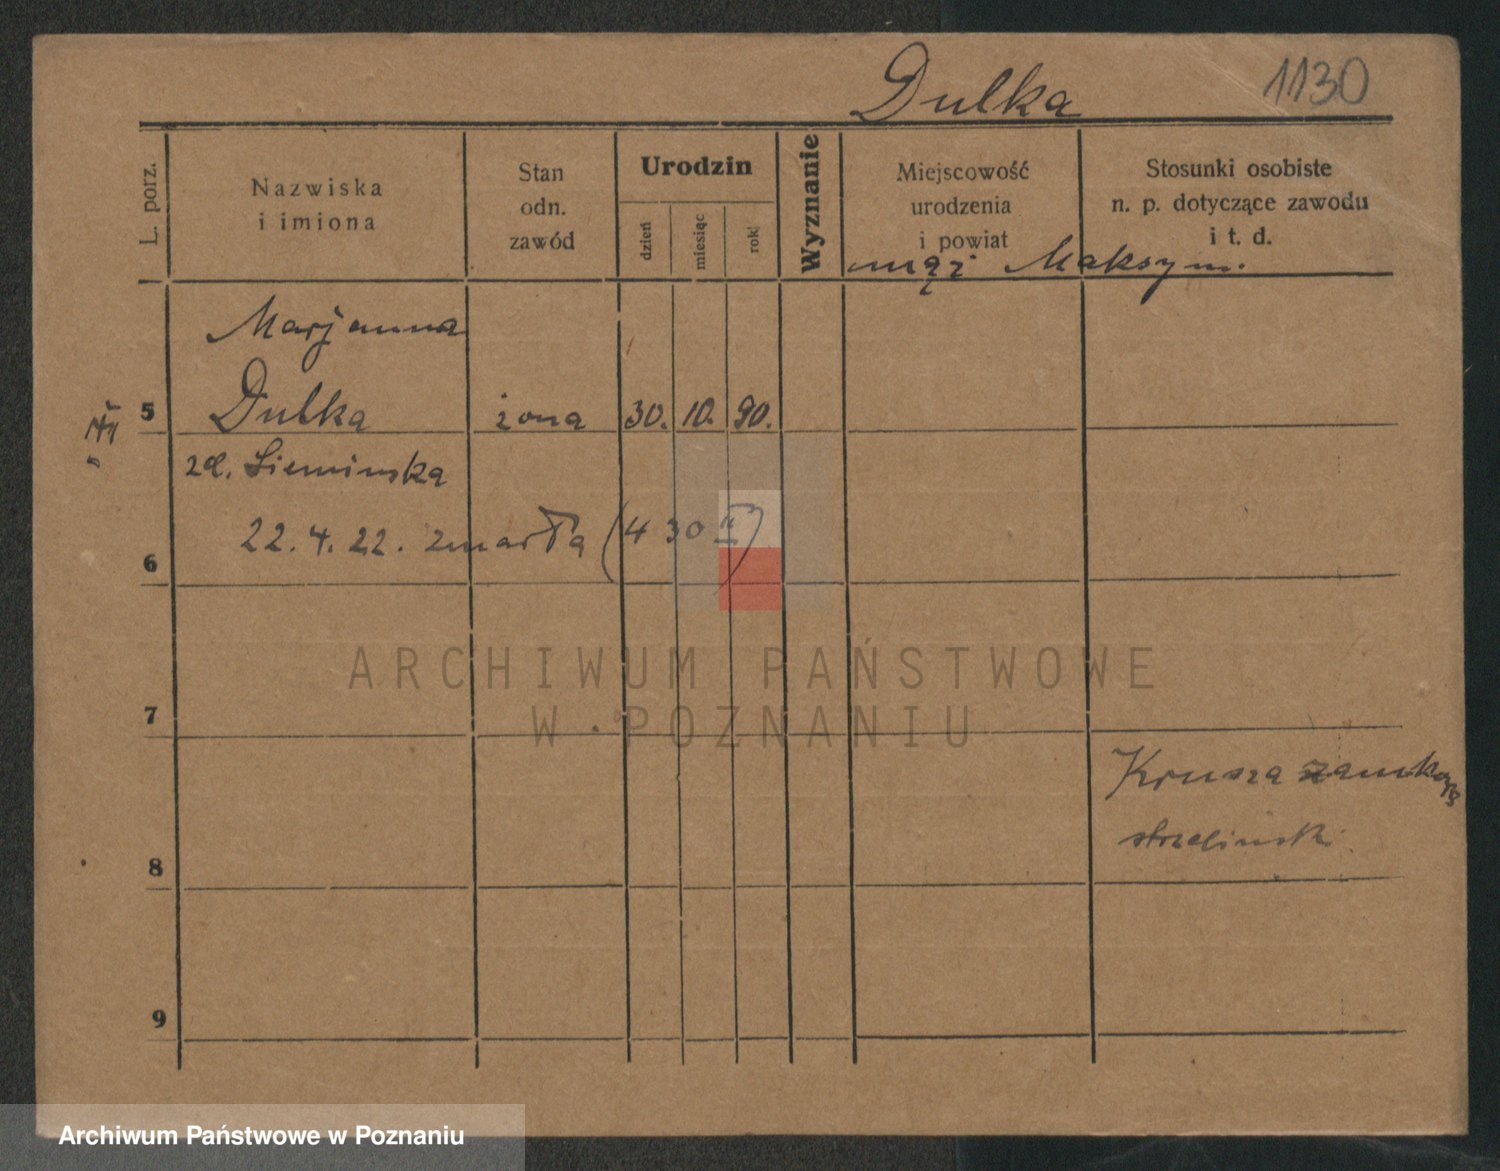 Dulka
1130
L. porz.
Nazwiska
i imiona
Stan
odn.
zawód
Urodzin
dzień
miesiąc
rok
Wyznanie
Miejscowość
urodzenia
i powiat
Stosunki osobiste
n. p. dotyczące zawodu
i t. d.
mąż Maksym.
Marjanna
5 Dulka żona 30. 10. 90.
zd. Siemińska
6 22. 4. 22. zmarła (4 30 II)
ARCHIWUM PAŃSTWOWE
7
W POZNANIU
Krusza zamkowa
8 strzeliński
9
Archiwum Państwowe w Poznaniu